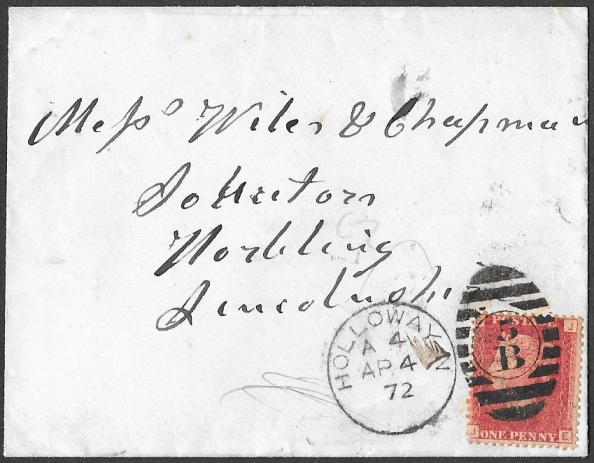 Messrs Wiles & Chapman
Solicitors
Horbling
Lincolnsh
HOLLOWAY N
A 4
AP 4
72
5
B
J
J E
ONE PENNY